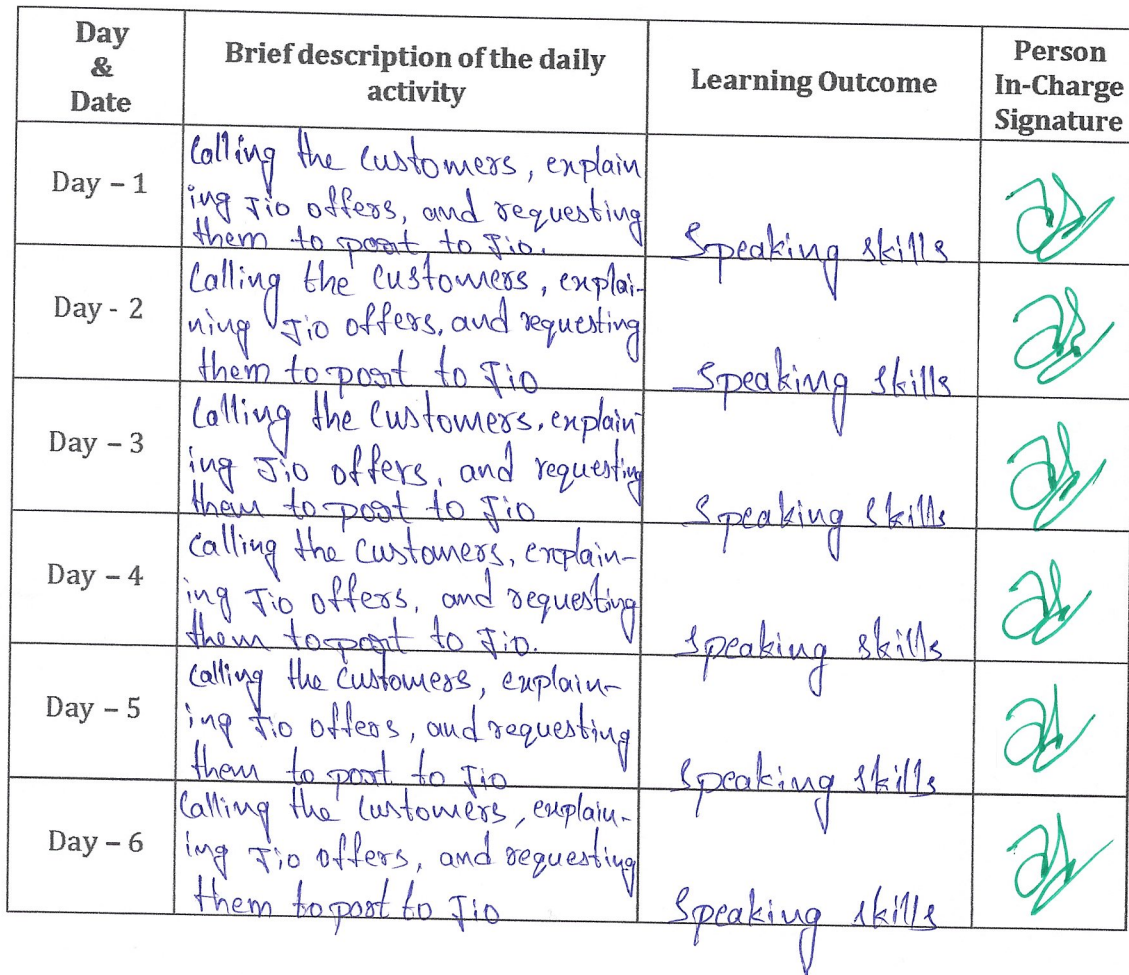 Day
&
Date
Brief description of the daily
activity
Learning Outcome
Person
In-Charge
Signature
Day – 1
Calling the customers, explain
ing Jio offers, and requesting
them to port to Jio.
Speaking skills
Day - 2
Calling the customers, explai-
ning Jio offers, and requesting
them to port to Jio
Speaking skills
Day – 3
Calling the customers, explain-
ing Jio offers, and requesting
them to port to Jio
Speaking skills
Day – 4
Calling the customers, explain-
ing Jio offers, and requesting
them to port to Jio.
Speaking skills
Day – 5
Calling the customers, explain-
ing Jio offers, and requesting
them to port to Jio
Speaking skills
Day – 6
Calling the customers, explain-
ing Jio offers, and requesting
them to port to Jio
Speaking skills